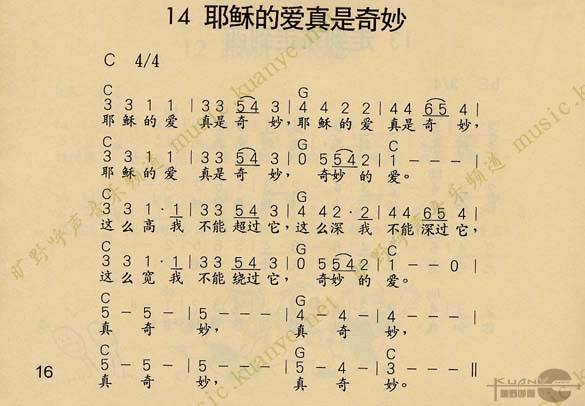 14 耶稣的爱真是奇妙
C 4/4
C G
3 3 1 1 | 3 3 5 4 3 | 4 4 2 2 | 4 4 6 5 4 |
耶稣的爱 真是奇妙，耶稣的爱 真是奇妙，
C G C
3 3 1 1 | 3 3 5 4 3 | 0 5 5 4 2 | 1 - - - |
耶稣的爱 真是奇妙， 奇妙的爱。
C G
3 3 1 · 1 | 3 3 5 4 3 | 4 4 2 · 2 | 4 4 6 5 4 |
这么高我 不能超过它，这么深我 不能深过它，
C G C
3 3 1 · 1 | 3 3 5 4 3 | 0 5 5 4 2 | 1 - - 0 |
这么宽我 不能绕过它， 奇妙的爱。
C G
5 - 5 - | 5 - - - | 4 - 4 - | 4 - - - |
真 奇 妙， 真 奇 妙，
C G C
5 - 5 - | 5 - - - | 5 - 4 - | 3 - - - ‖
真 奇 妙， 真 奇 妙。
16
旷野呼声音乐频道 music.kuanye.net
KUANYE